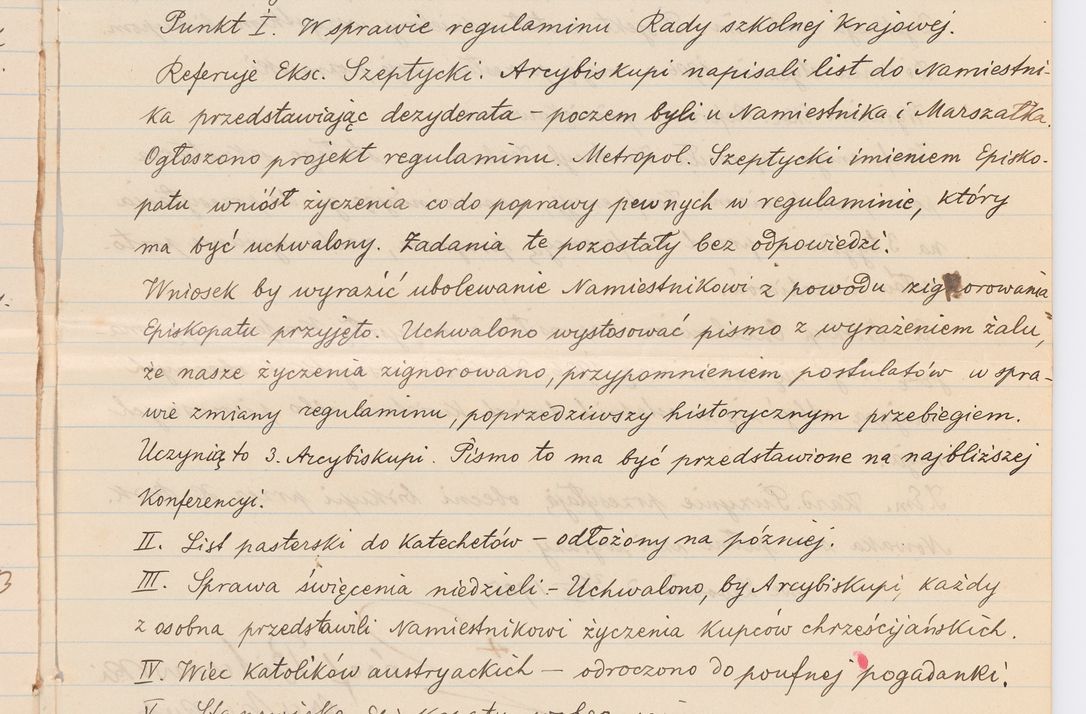 Punkt I. W sprawie regulaminu Rady szkolnej Krajowej.
Referuje Eksc. Szeptycki. Arcybiskupi napisali list do Namiestni-
ka przedstawiając dezyderata – poczem byli u Namiestnika i Marszałka.
Ogłoszono projekt regulaminu. Metropol. Szeptycki imieniem Episko-
patu wniósł życzenia co do poprawy pewnych w regulaminie, który
ma być uchwalony. Żadania te pozostały bez odpowiedzi.
Wniosek by wyrazić ubolewanie Namiestnikowi z powodu zignorowania
Episkopatu przyjęto. Uchwalono wystosować pismo z wyrażeniem żalu,
że nasze życzenia zignorowano, przypomnieniem postulatów w spra-
wie zmiany regulaminu, poprzedziwszy historycznym przebiegiem.
Uczynią to 3. Arcybiskupi. Pismo to ma być przedstawione na najbliższej
Konferencyi.
II. List pasterski do Katechetów – odłożony na później.
III. Sprawa święcenia niedzieli – Uchwalono, by Arcybiskupi, każdy
z osobna przedstawili Namiestnikowi życzenia Kupców chrześcijańskich.
IV. Wiec Katolików austryackich – odroczono do poufnej pogadanki.
V.